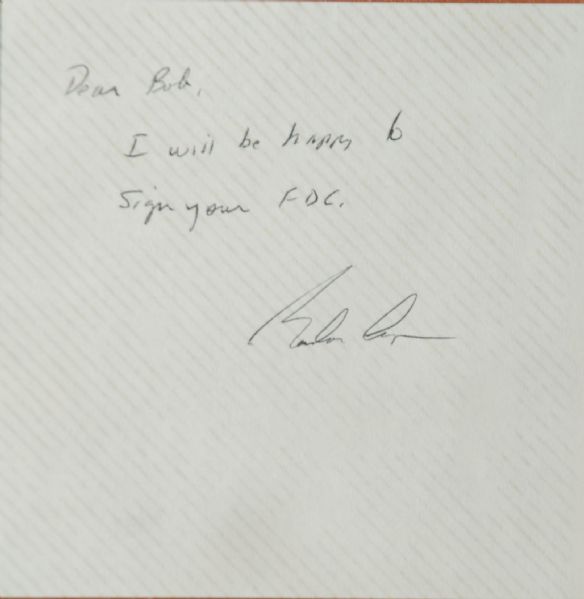 Dear Bob,
I will be happy to
sign your FDC.